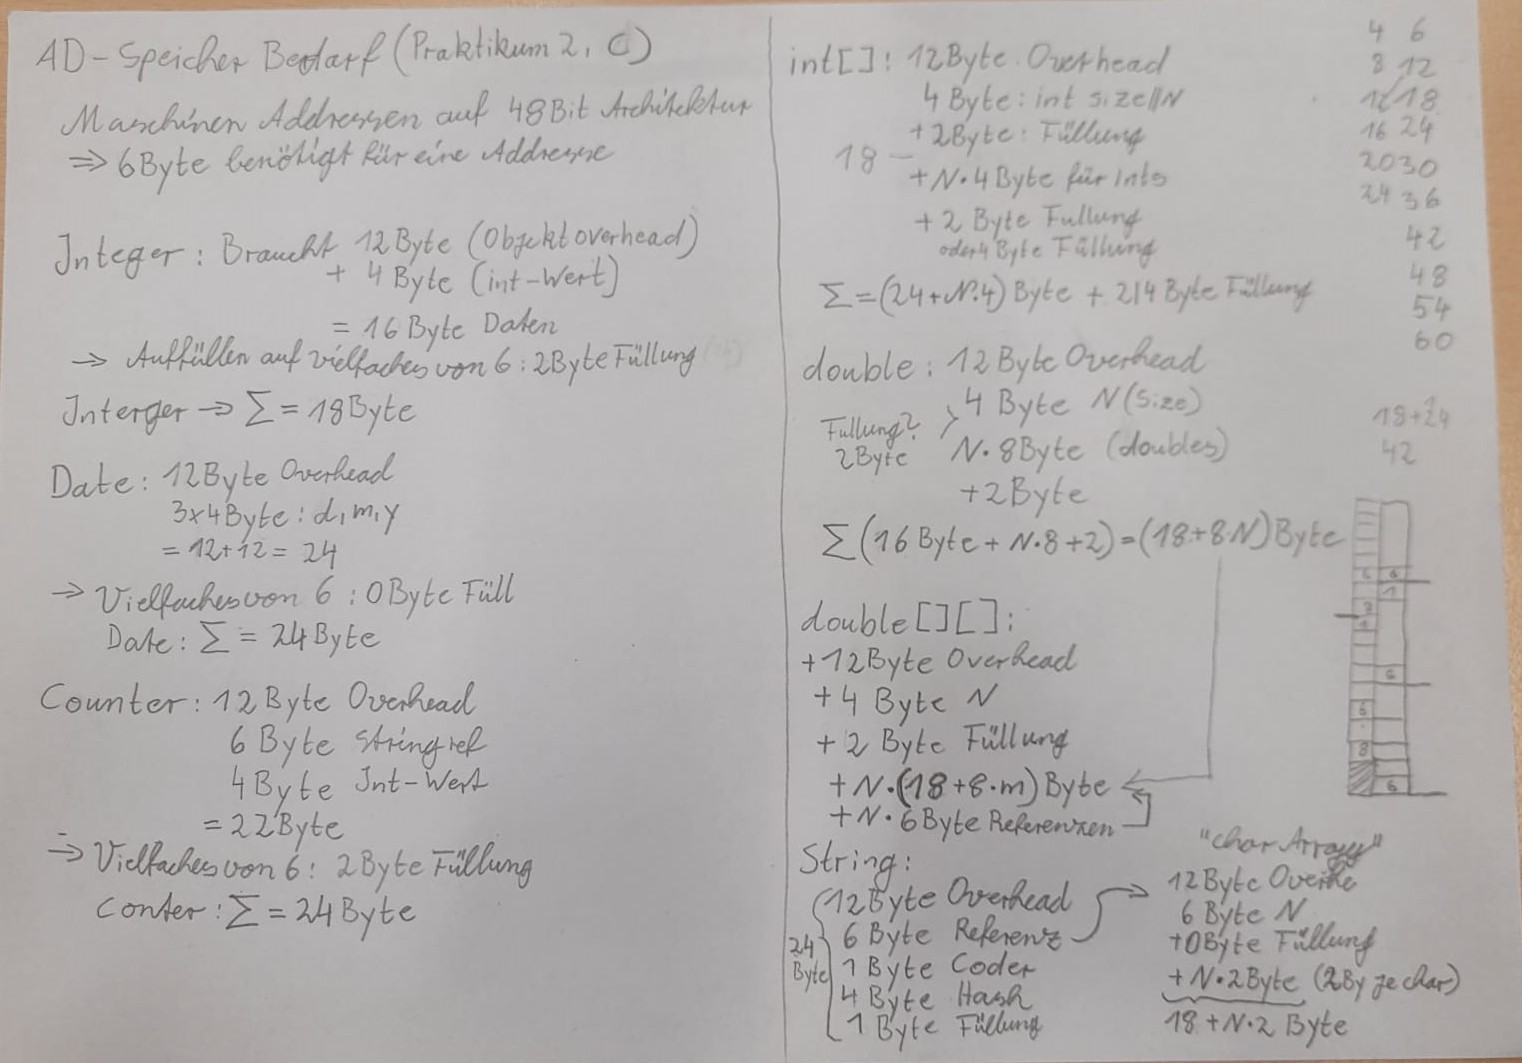 AD-Speicher Bedarf (Praktikum 2, C)
Maschinen Addressen auf 48Bit Architektur
=> 6Byte benötigt für eine Addresse
Integer: Braucht 12Byte (Objektoverhead)
+ 4Byte (int-Wert)
= 16Byte Daten
-> Auffüllen auf vielfaches von 6: 2Byte Füllung
Interger -> Σ = 18Byte
Date: 12Byte Overhead
3x4Byte: d, m, y
= 12+12 = 24
-> Vielfaches von 6: 0Byte Füll
Date: Σ = 24Byte
Counter: 12Byte Overhead
6 Byte Stringref
4Byte Int-Wert
= 22Byte
-> Vielfaches von 6: 2Byte Füllung
Conter: Σ = 24Byte
int[]: 12Byte Overhead
4 Byte: int size//N
+ 2Byte: Füllung
18 -
+ N·4 Byte für Ints
+ 2 Byte Fullung
oder 4 Byte Füllung
Σ = (24+N·4) Byte + 2/4 Byte Füllung
double: 12Byte Overhead
4 Byte N (Size)
Fullung?
2Byte
N·8Byte (doubles)
+2Byte
Σ (16 Byte + N·8+2) = (18+8·N) Byte
double[][]:
+12Byte Overhead
+ 4 Byte N
+ 2 Byte Füllung
+ N·(18+8·m) Byte
+ N·6Byte Referenzen
String:
12Byte Overhead
6 Byte Referenz
24
Byte
1 Byte Coder
4 Byte Hash
1 Byte Füllung
"char Array"
12Byte Overhe
6 Byte N
+0Byte Füllung
+ N·2Byte (2By je char)
18 + N·2 Byte
4 6
8 12
12 18
16 24
20 30
24 36
42
48
54
60
18+24
42
6 6
1
6
6
8
6